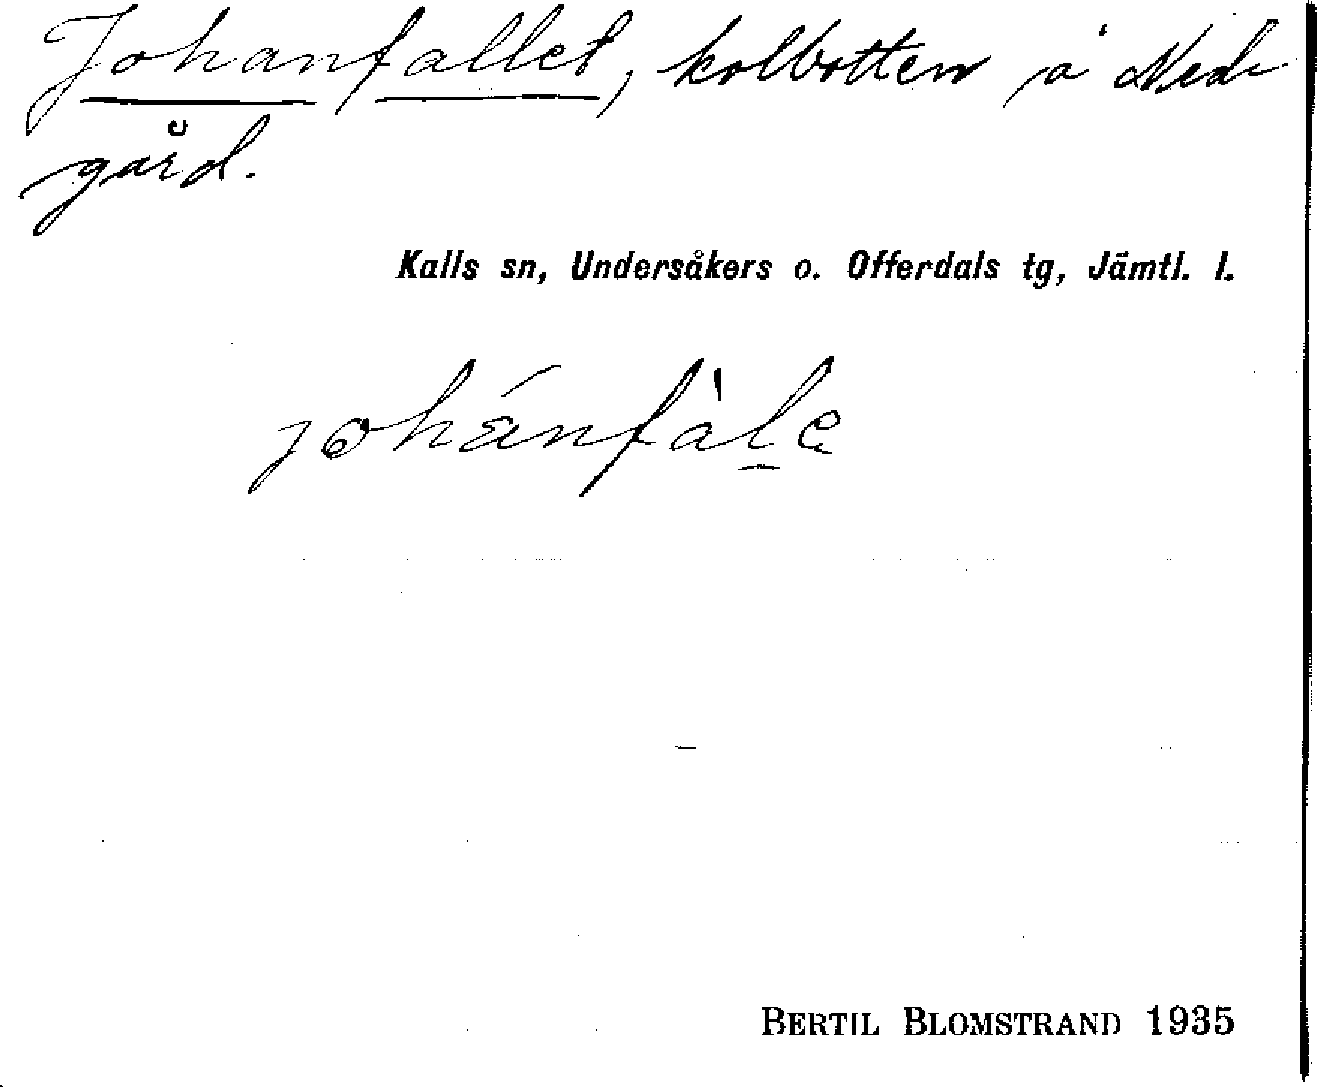 Johanfallet, kolbotten å Ned-
gård.
Kalls sn, Undersåkers o. Offerdals tg, Jämtl. l.
BERTIL BLOMSTRAND 1935